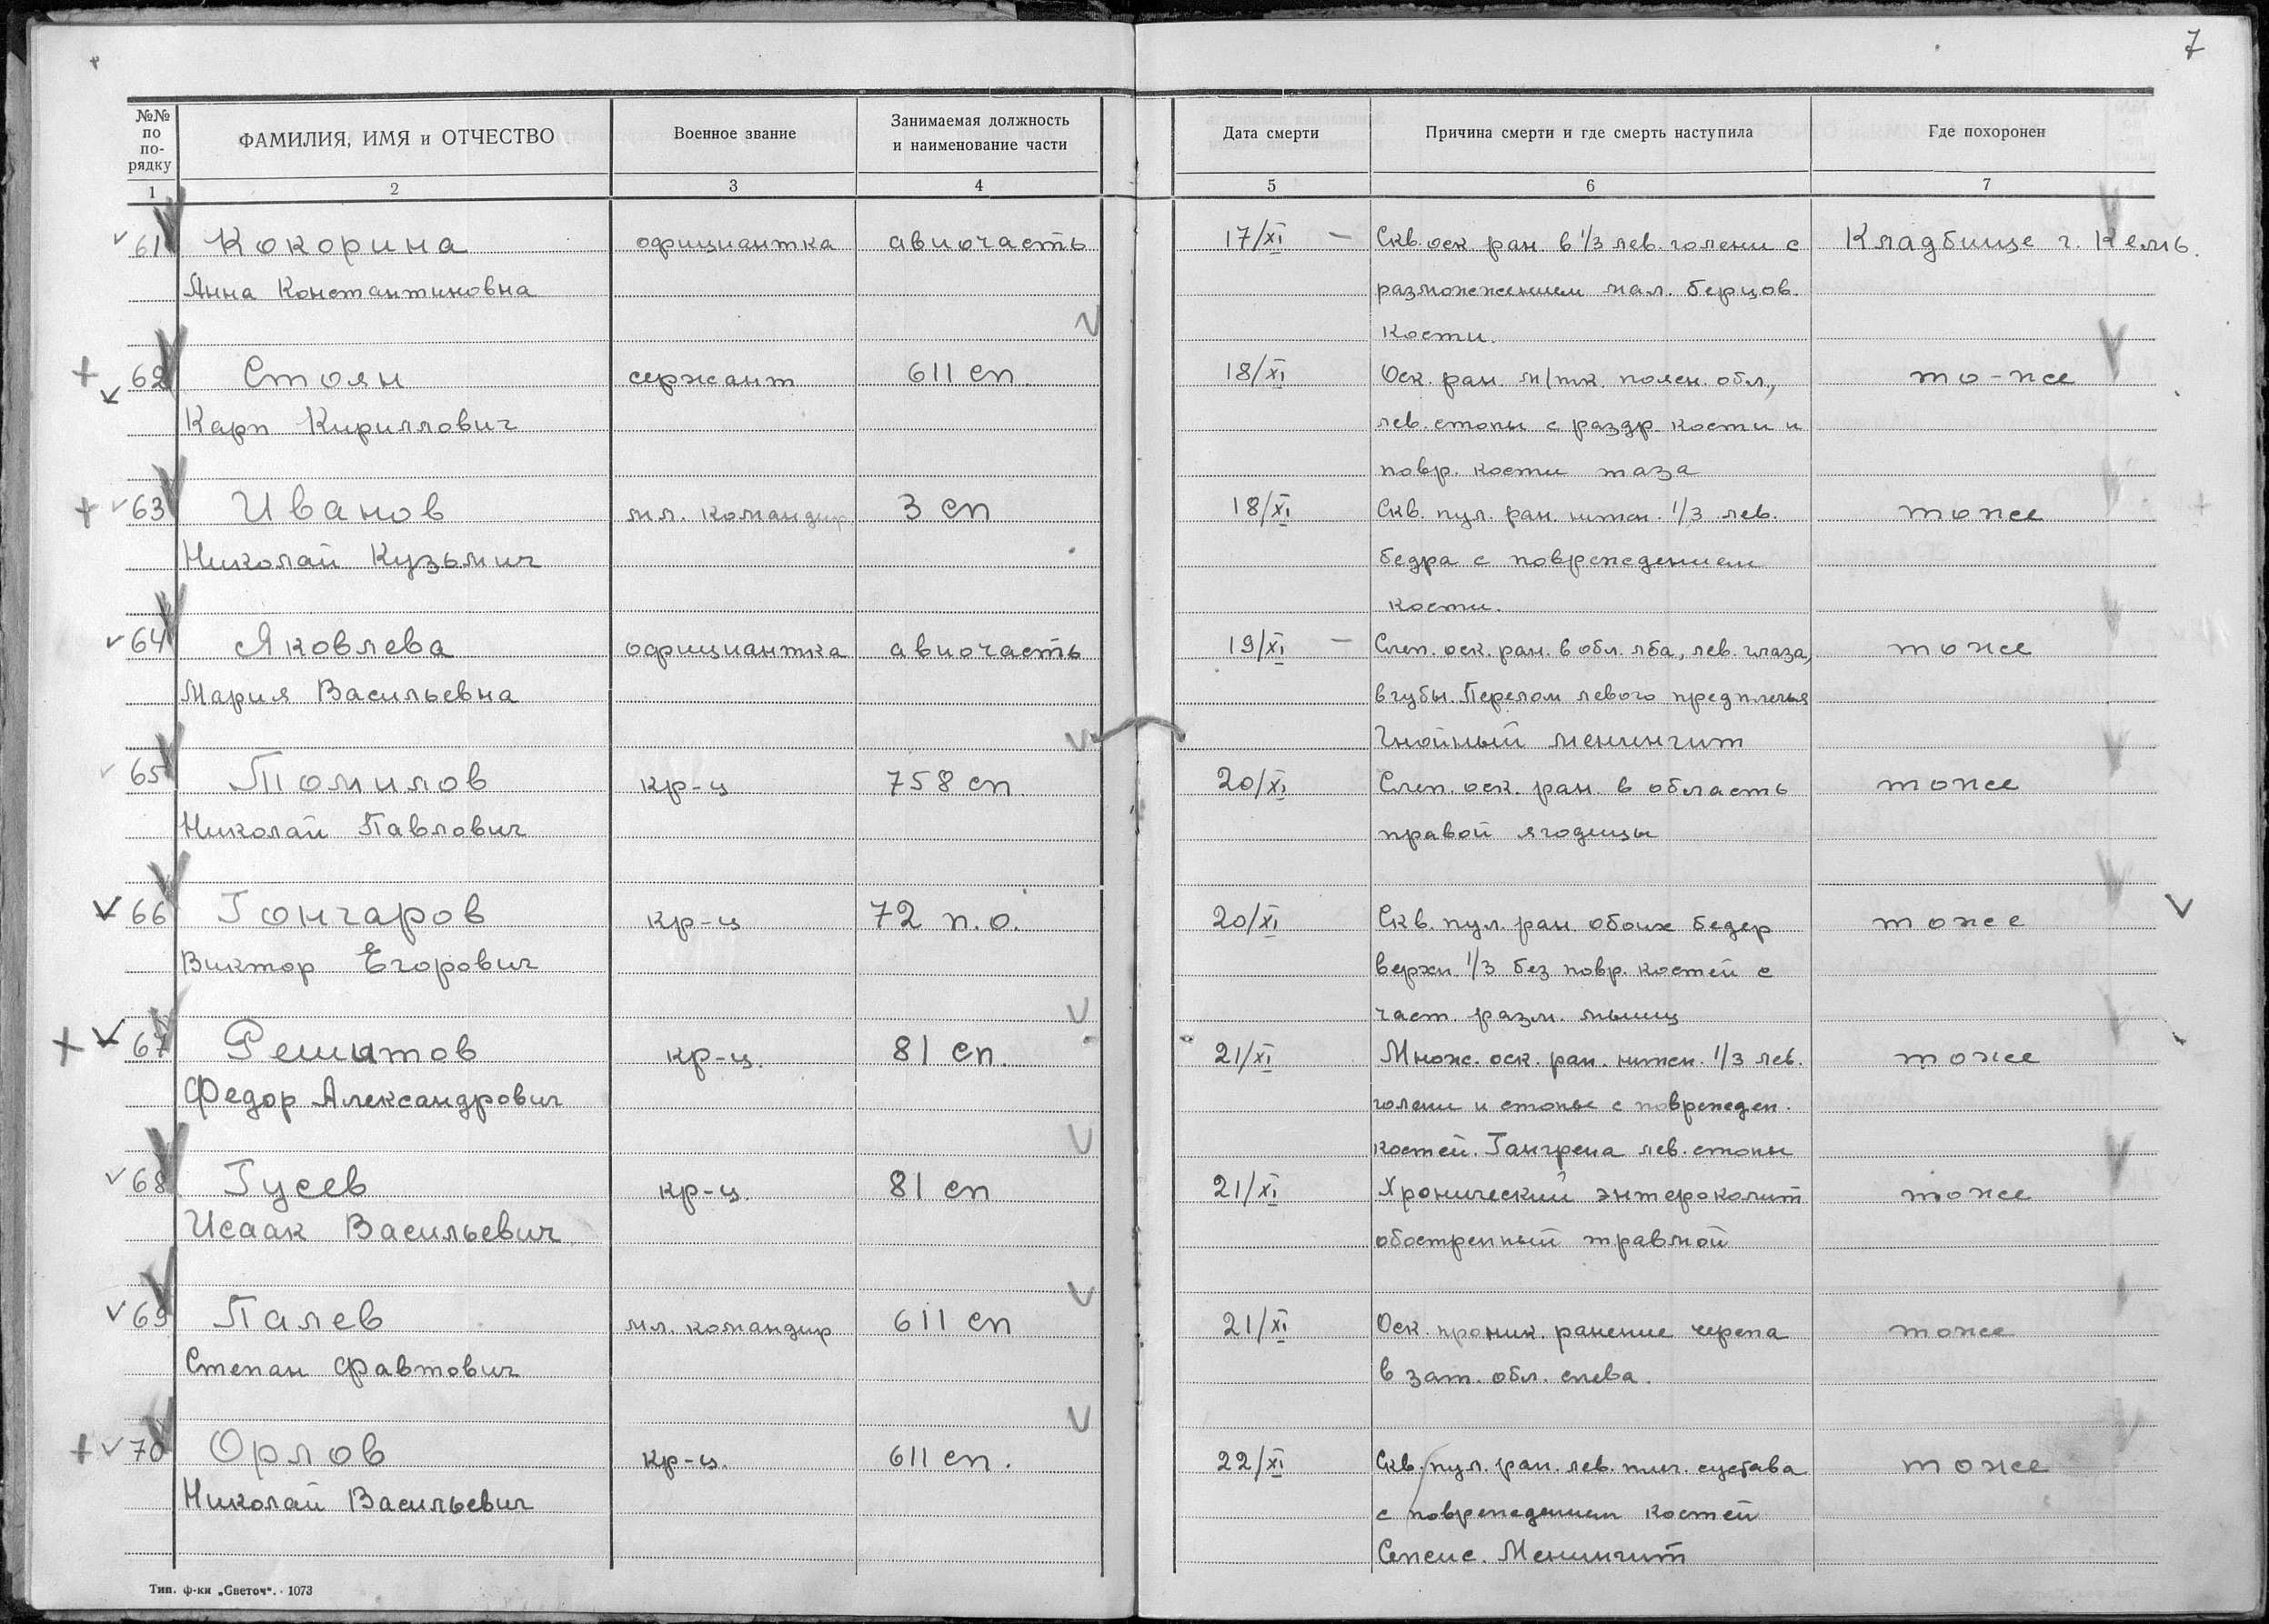 7
№№ по по- рядку
ФАМИЛИЯ, ИМЯ и ОТЧЕСТВО
Военное звание
Занимаемая должность и наименование части
Дата смерти
Причина смерти и где смерть наступила
Где похоронен
1 2 3 4 5 6 7
61 Кокорина официантка авиочасть 17/XI – Скв оск ран в 1/3 лев. голени с Кладбище г. Кемь.
Анна Константиновна размозжением мал. берцов.
кости.
62 Стоян сержант 611 сп. 18/XI Оск. ран. м/тк. поясн. обл., то-же
Карп Кириллович лев. стопы с раздр. кости и
повр. кости таза
63 Иванов мл. командир 3 сп 18/XI Скв. пул. ран. нижн. 1/3 лев. тоже
Николай Кузьмич бедра с повреждением
кости.
64 Яковлева официантка авиочасть 19/XI – Слеп. оск. ран. в обл. лба, лев. глаза, тоже
Мария Васильевна в губы. Перелом левого предплечья
Гнойный менингит
65 Томилов кр-ц 758 сп. 20/XI Слеп. оск. ран. в область тоже
Николай Павлович правой ягодицы
66 Гончаров кр-ц 72 п.о. 20/XI Скв. пул. ран обоих бедер тоже
Виктор Егорович верхн. 1/3 без повр. костей с
част. разм. мышц
67 Решитов кр-ц. 81 сп. 21/XI Множ. оск. ран. нижн. 1/3 лев. тоже
Федор Александрович голени и стопы с поврежден.
костей. Гангрена лев. стопы
68 Гусев кр-ц. 81 сп 21/XI Хронический энтероколит тоже
Исаак Васильевич обостренный травмой
69 Палев мл. командир 611 сп 21/XI Оск. проник. ранение черепа тоже
Степан Фавтович в зат. обл. слева.
70 Орлов кр-ц. 611 сп. 22/XI Скв. пул. ран. лев. плеч. сустава тоже
Николай Васильевич с повреждением костей
Сепсис. Менингит
Тип. ф-ки „Светоч“. 1073